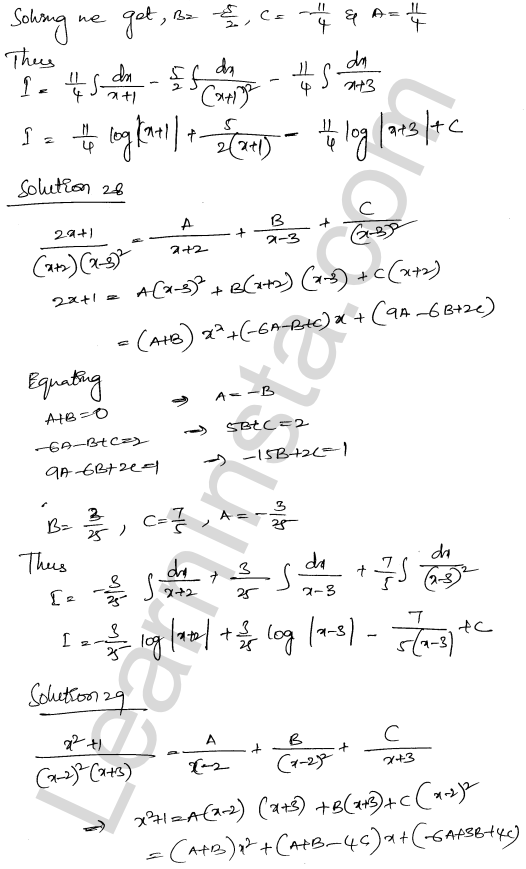 Solving we get, B = -5/2, C = -11/4 & A = 11/4
Thus
I = 11/4 ∫ dx/(x+1) - 5/2 ∫ dx/(x+1)² - 11/4 ∫ dx/(x+3)
I = 11/4 log|x+1| + 5/(2(x+1)) - 11/4 log|x+3| + C
Solution 28
(2x+1)/((x+2)(x-3)²) = A/(x+2) + B/(x-3) + C/(x-3)²
2x+1 = A(x-3)² + B(x+2)(x-3) + C(x+2)
= (A+B)x² + (-6A-B+C)x + (9A-6B+2C)
Equating
A+B=0 ⇒ A = -B
-6A-B+C=2 ⇒ 5B+C=2
9A-6B+2C=1 ⇒ -15B+2C=1
B = 3/25, C = 7/5, A = -3/25
Thus
I = -3/25 ∫ dx/(x+2) + 3/25 ∫ dx/(x-3) + 7/5 ∫ dx/(x-3)²
I = -3/25 log|x+2| + 3/25 log|x-3| - 7/(5(x-3)) + C
Solution 29
(x²+1)/((x-2)²(x+3)) = A/(x-2) + B/(x-2)² + C/(x+3)
⇒ x²+1 = A(x-2)(x+3) + B(x+3) + C(x-2)²
= (A+B)x² + (A+B-4C)x + (-6A+3B+4C)
LearnInsta.com